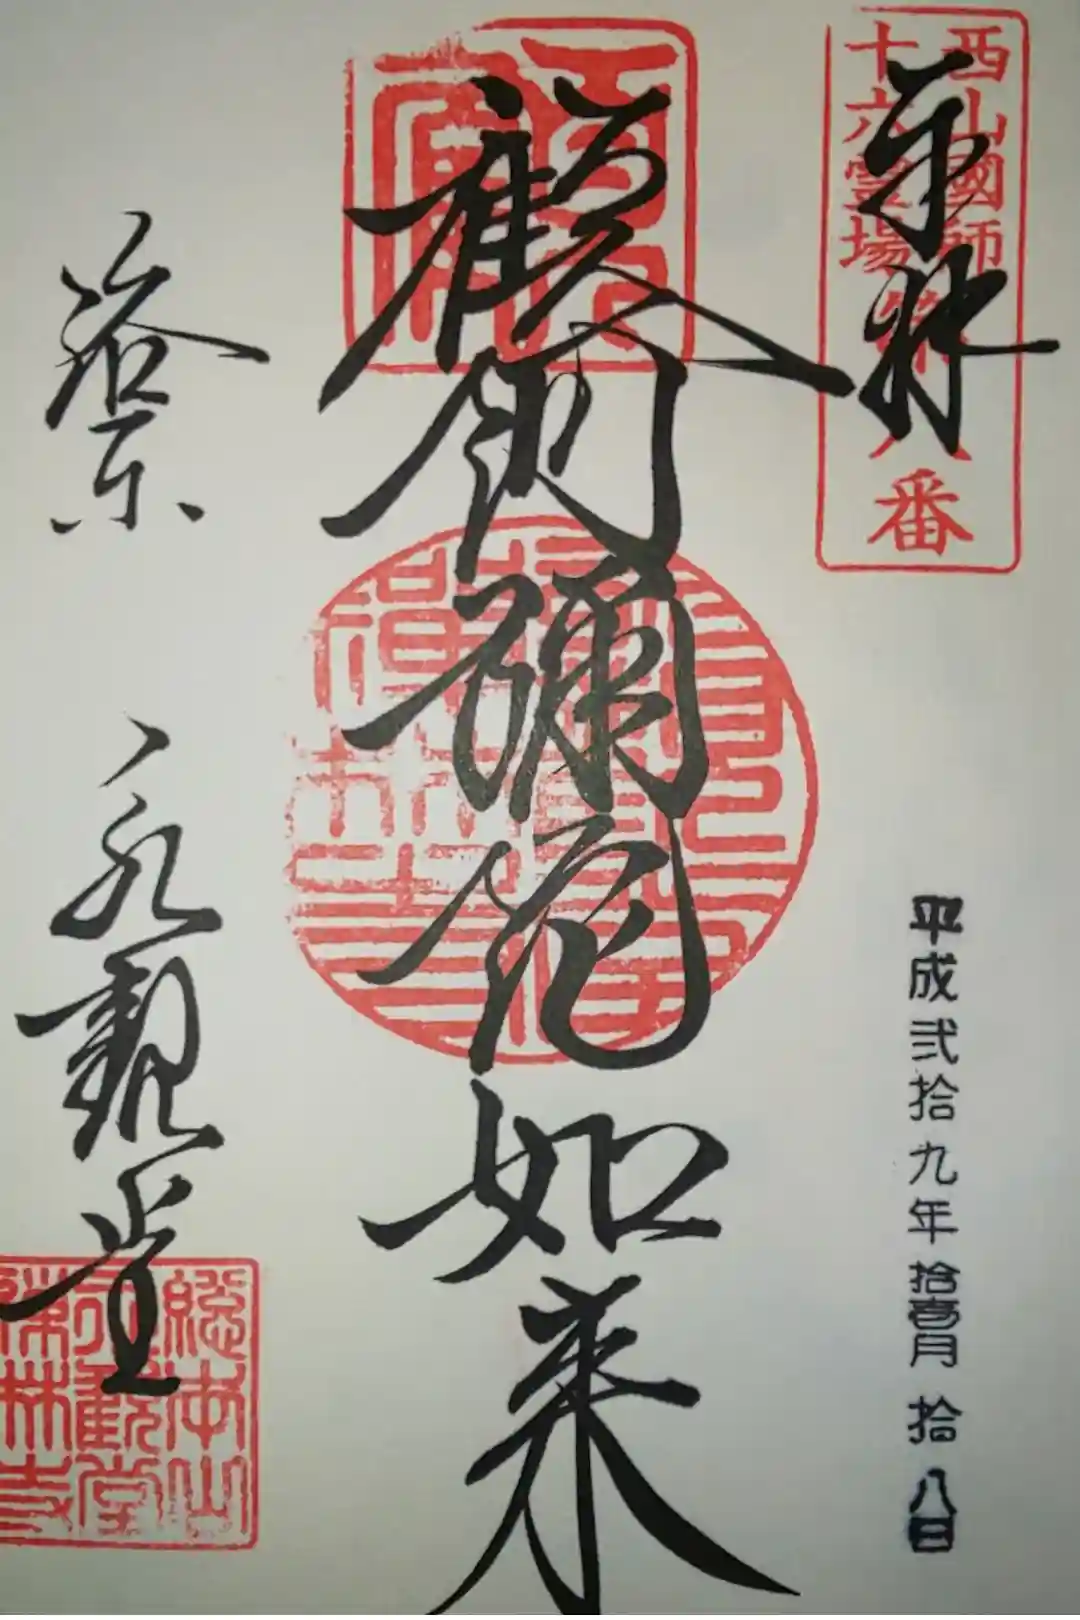 奉拝
西山國師
十六霊場
第八番
平成弐拾九年拾壹月拾八日
顧阿彌陀如来
洛東 永觀堂
総本山
永観堂
禅林寺